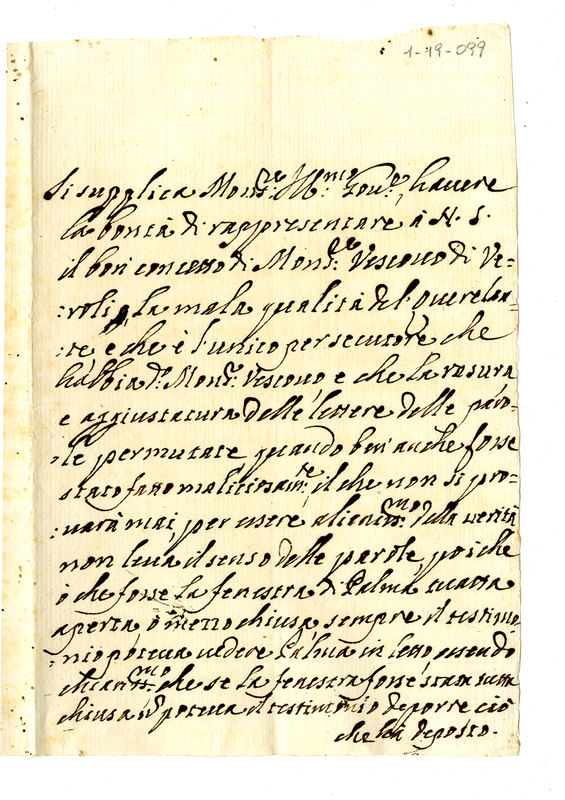 1-19-099
Si supplica Mons.re Ill.mo Gov.re, havere
la bontà di rappresentare à N. S.
il bon concetto di Mons.re Vescovo di Ve=
:roli, la mala qualità del Querelan=
:te, e che è l'unico persecutore che
habbia d.o Mons.re Vescovo e che la rasura
e aggiustatura delle lettere delle paro=
:le permutate, quando ben anche fosse
stato fatto malitiosam.te, il che non si pro=
:uarà mai, per essere alieniss.mo della verità
non leva il senso delle parole, poiche
ò che fosse la fenestra di Palma tutta
aperta, ò mezzo chiusa, sempre il testimo
:nio poteva vedere Palma in letto essendo
chiariss.mo che se la fenestra fosse stata tutta
chiusa nõ poteva il testimonio deporre ciò
che hà deposto.